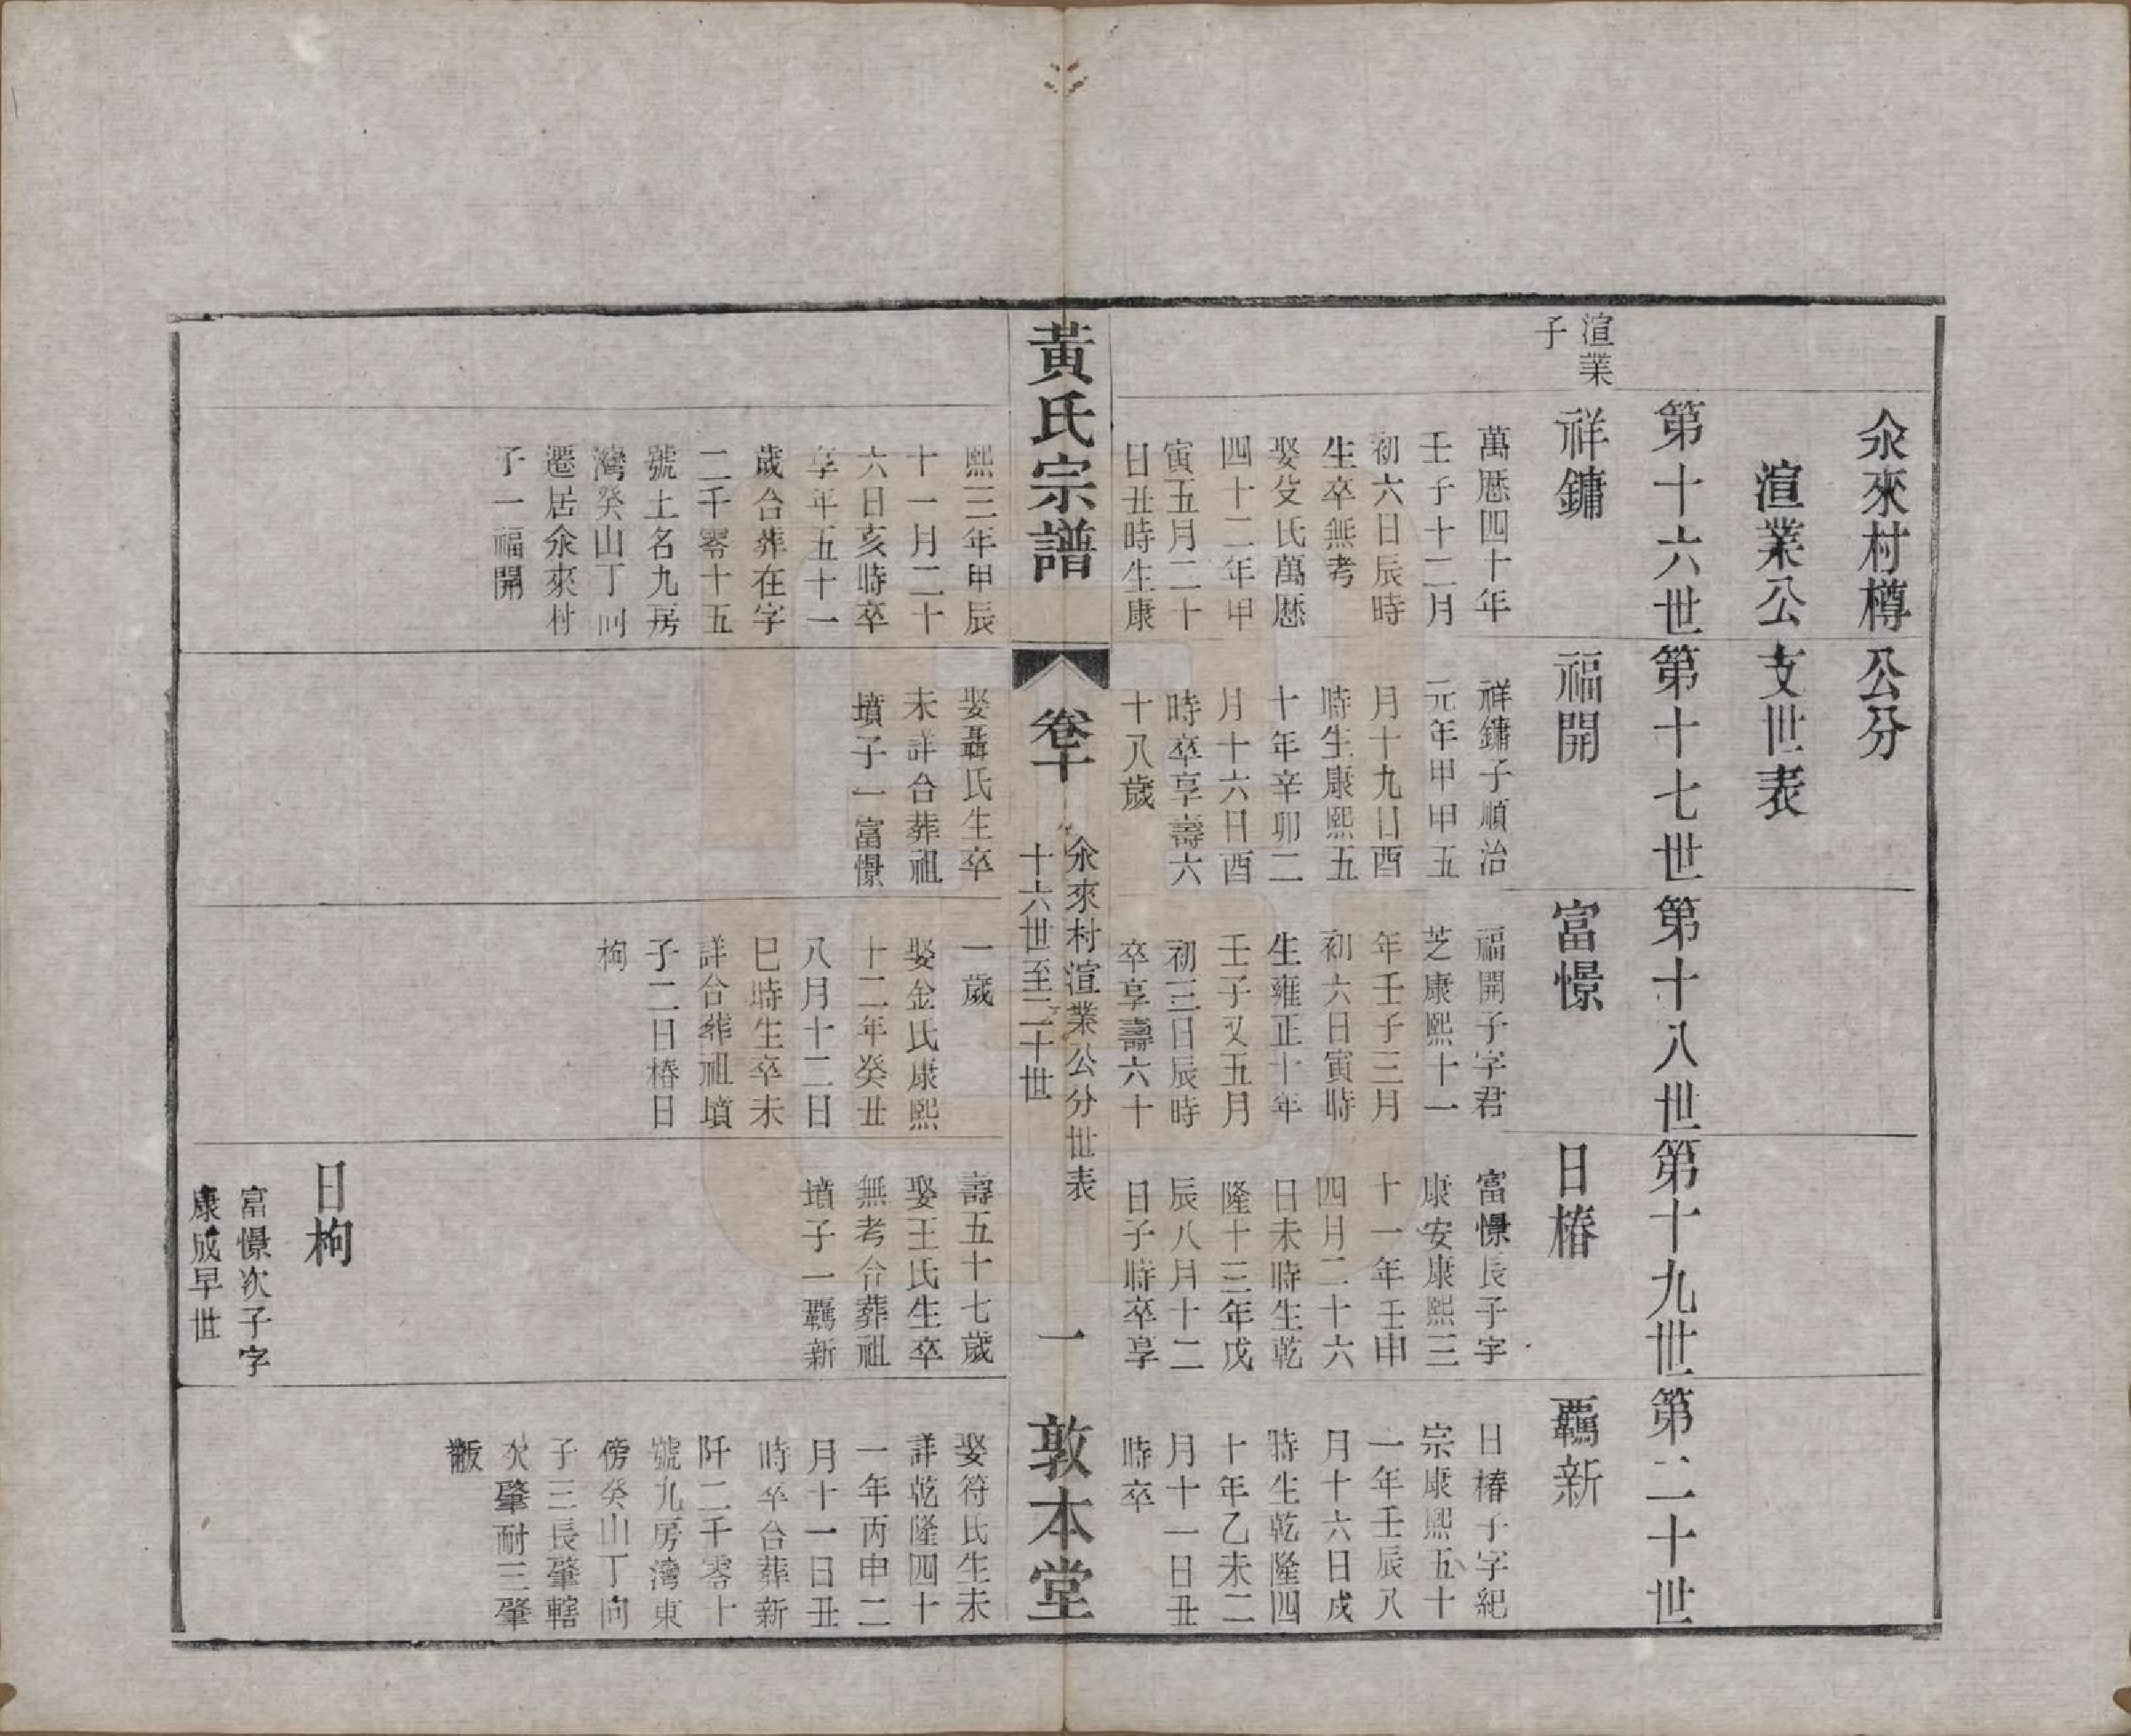 汆來村樽公分
渲業公支世表
第十六世
第十七世
第十八世
第十九世
第二十世
渲業
子
祥鏞
萬曆四十年
壬子十二月
初六日辰時
生卒無考
娶殳氏萬曆
四十二年甲
寅五月二十
日丑時生康
熙三年甲辰
十一月二十
六日亥時卒
享年五十一
歲合葬在字
二千零十五
號土名九房
灣癸山丁向
遷居汆來村
子一福開
福開
祥鏞子順治
元年甲申五
月十九日酉
時生康熙五
十年辛卯二
月十六日酉
時卒享壽六
十八歲
娶聶氏生卒
未詳合葬祖
墳子一富憬
富憬
福開子字君
芝康熙十一
年壬子三月
初六日寅時
生雍正十年
壬子又五月
初三日辰時
卒享壽六十
一歲
娶金氏康熙
十二年癸丑
八月十二日
巳時生卒未
詳合葬祖墳
子二日椿日
枸
日椿
富憬長子字
康安康熙三
十一年壬申
四月二十六
日未時生乾
隆十三年戊
辰八月十二
日子時卒享
壽五十七歲
娶王氏生卒
無考合葬祖
墳子一覊新
日枸
富憬次子字
康成早世
覊新
日椿子字紀
宗康熙五十
一年壬辰八
月十六日戌
時生乾隆四
十年乙未二
月十一日丑
時卒
娶符氏生未
詳乾隆四十
一年丙申二
月十一日丑
時卒合葬新
阡二千零十
號九房灣東
傍癸山丁向
子三長肇轄
次肇耐三肇
黻
黃氏宗譜
卷十
汆來村渲業公分世表
十六世至二十世
一
敦本堂